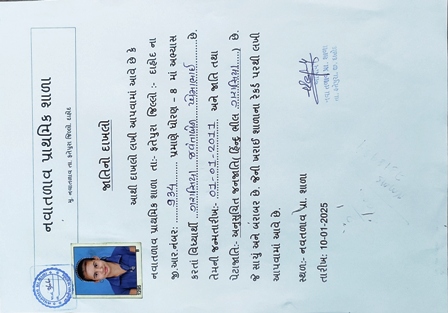 નવાતળાવ પ્રાથમિક શાળા
મુ. નવાતળાવ તા. ફતેપુરા જિલ્લો. દાહોદ
જાતિનો દાખલો
આથી દાખલો લખી આપવામાં આવે છે કે
નવાતળાવ પ્રાથમિક શાળા તા:- ફતેપુરા જિલ્લો :- દાહોદ ના
જી.આર.નંબર: 934 પ્રમાણે ધોરણ – 8 માં અભ્યાસ
કરતાં વિદ્યાર્થી છે.
તેમની જન્મતારીખ:- 01-01-2011 અને જાતિ તથા
પેટાજાતિ:- અનુસુચિત જનજાતિ( હિન્દુ ભીલ ) છે.
જે સાચું અને બરાબર છે. જેની ખરાઈ શાળાના રેકર્ડ પરથી લખી
આપવામાં આવે છે.
સ્થળ:- નવાતળાવ પ્રા. શાળા
તારીખ: 10-01-2025